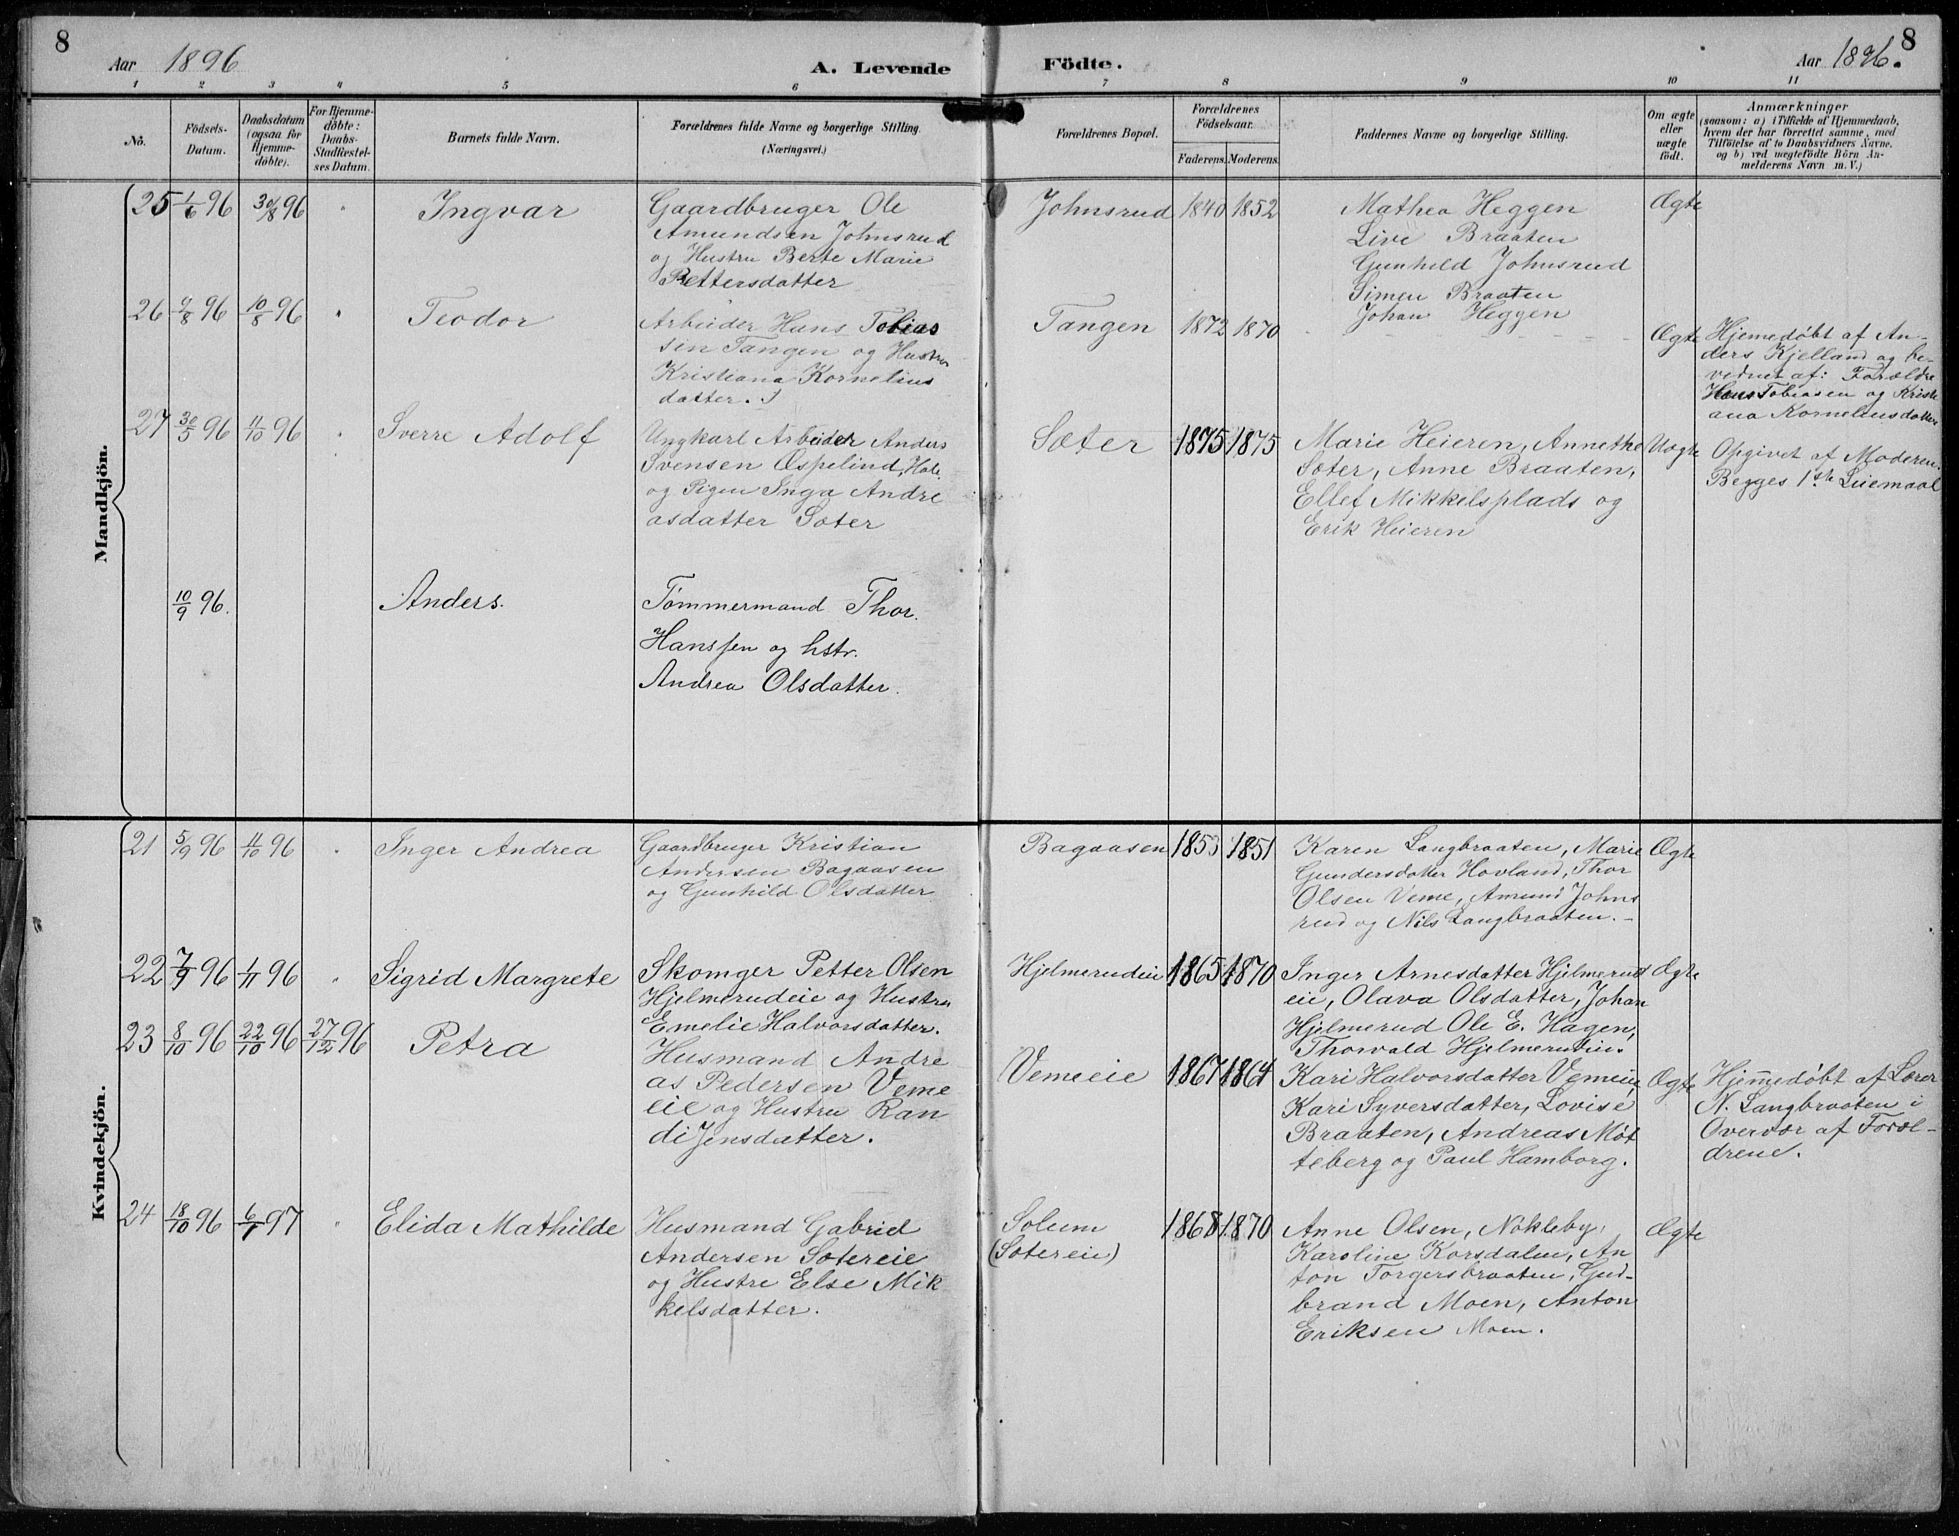 8
Aar 1896
A. Levende
Födte.
Aar 1896.
8
1 2 3 4 5 6 7 8 9 10 11
No.
Födsels-
Datum.
Daabsdatum
(ogsaa for
Hjemme-
döbte).
For Hjemme-
döbte:
Daabs-
Stadfæstel-
ses Datum.
Barnets fulde Navn.
Forældrenes fulde Navne og borgerlige Stilling.
(Næringsvei.)
Forældrenes Bopæl.
Forældrenes
Födselsaar.
Faderens. Moderens.
Faddernes Navne og borgerlige Stilling.
Om ægte
eller
uægte
födt.
Anmærkninger
(saasom: a) i Tilfælde af Hjemmedaab,
hvem der har forrettet samme, med
Tilföielse af to Daabsvidners Navne,
og b) ved uægtefödte Börn An-
melderens Navn m. V.)
Mandkjön.
25 1/6 96 30/8 96 " Ingvar
Gaardbruger Ole
Amundsen Johnsrud
og Hustru Berte Marie
Pettersdatter
Johnsrud 1840 1852
Mathea Heggen
Live Braaten
Gunhild Johnsrud
Simen Braaten
Johan Heggen
Ægte
26 9/8 96 10/8 96 " Teodor
Arbeider Hans Tobias
sen Tangen og Hustru
Kristiana Kornelius
datter.
Tangen 1872 1870
Ægte
Hjemedøbt af An-
ders Kjelland og be-
vidnet af: Forældre
Hans Tobiasen og Kristi
ana Korneliusdatter
27 30/5 96 11/10 96 " Sverre Adolf
Ungkarl Arbeider Anders
Svensen Æspelind, Hole
og Pigen Inga Andre
asdatter Sæter
Sæter 1875 1875
Marie Heieren, Annethe
Sæter, Anne Braaten,
Ellef Mikkelsplads og
Erik Heieren
Uægte
Opgivet af Moderen.
Begges 1ste Leiemaal
10/9 96. Anders.
Tømmermand Thor
Hanssen og hstr.
Andrea Olsdatter.
Kvindekjön.
21 5/9 96 11/10 96 " Inger Andrea
Gaardbruger Kristian
Andersen Bagaasen
og Gunhild Olsdatter
Bagaasen 1853 1851
Karen Langbraaten, Marie
Gundersdatter Hovland, Thor
Olsen Veme, Amund Johns
rud og Nils Langbraaten.
Ægte
22 7/9 96 1/11 96 " Sigrid Margrete
Skomger Petter Olsen
Hjelmerudeie og Hustru
Emelie Halvorsdatter.
Hjelmerudeie 1865 1870
Inger Arnesdatter Hjelmerud
eie, Olava Olsdatter, Johan
Hjelmerud Ole E. Hagen,
Thorvald Hjelmerudeie.
Ægte
23 8/10 96 22/10 96 27/12 96 Petra
Husmand Andre
as Pedersen Veme
eie og Hustru Ran
di Jensdatter.
Vemeeie 1867 1864
Kari Halvorsdatter Vemeeie,
Kari Syversdatter, Lovise
Braaten, Andreas Møt
teberg og Paul Hamborg.
Ægte
Hjem̅edøbt af Lærer
N. Langbraaten i
Overvær af Foræl-
drene.
24 18/10 96 6/1 97 " Elida Mathilde
Husmand Gabriel
Andersen Sætereie
og Hustre Else Mik
kelsdatter.
Solum
(Sætereie)
1868 1870
Anne Olsen, Nøkleby,
Karoline Korsdalen, An
ton Torgersbraaten, Gud-
brand Moen, Anton
Eriksen Moen.
Ægte